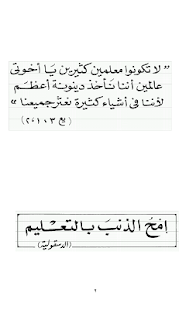 ” لا تكونوا معلمين كثيرين يَا أخوتى
عالمين أننا نأخذ دينونة أعظم
لأننا فى أشياء كثيرة نعثر جميعنا “
( يع ٣ : ١ ، ٢ )
إمْحُ الذنبَ بالتعْليم
(الدسقولية)